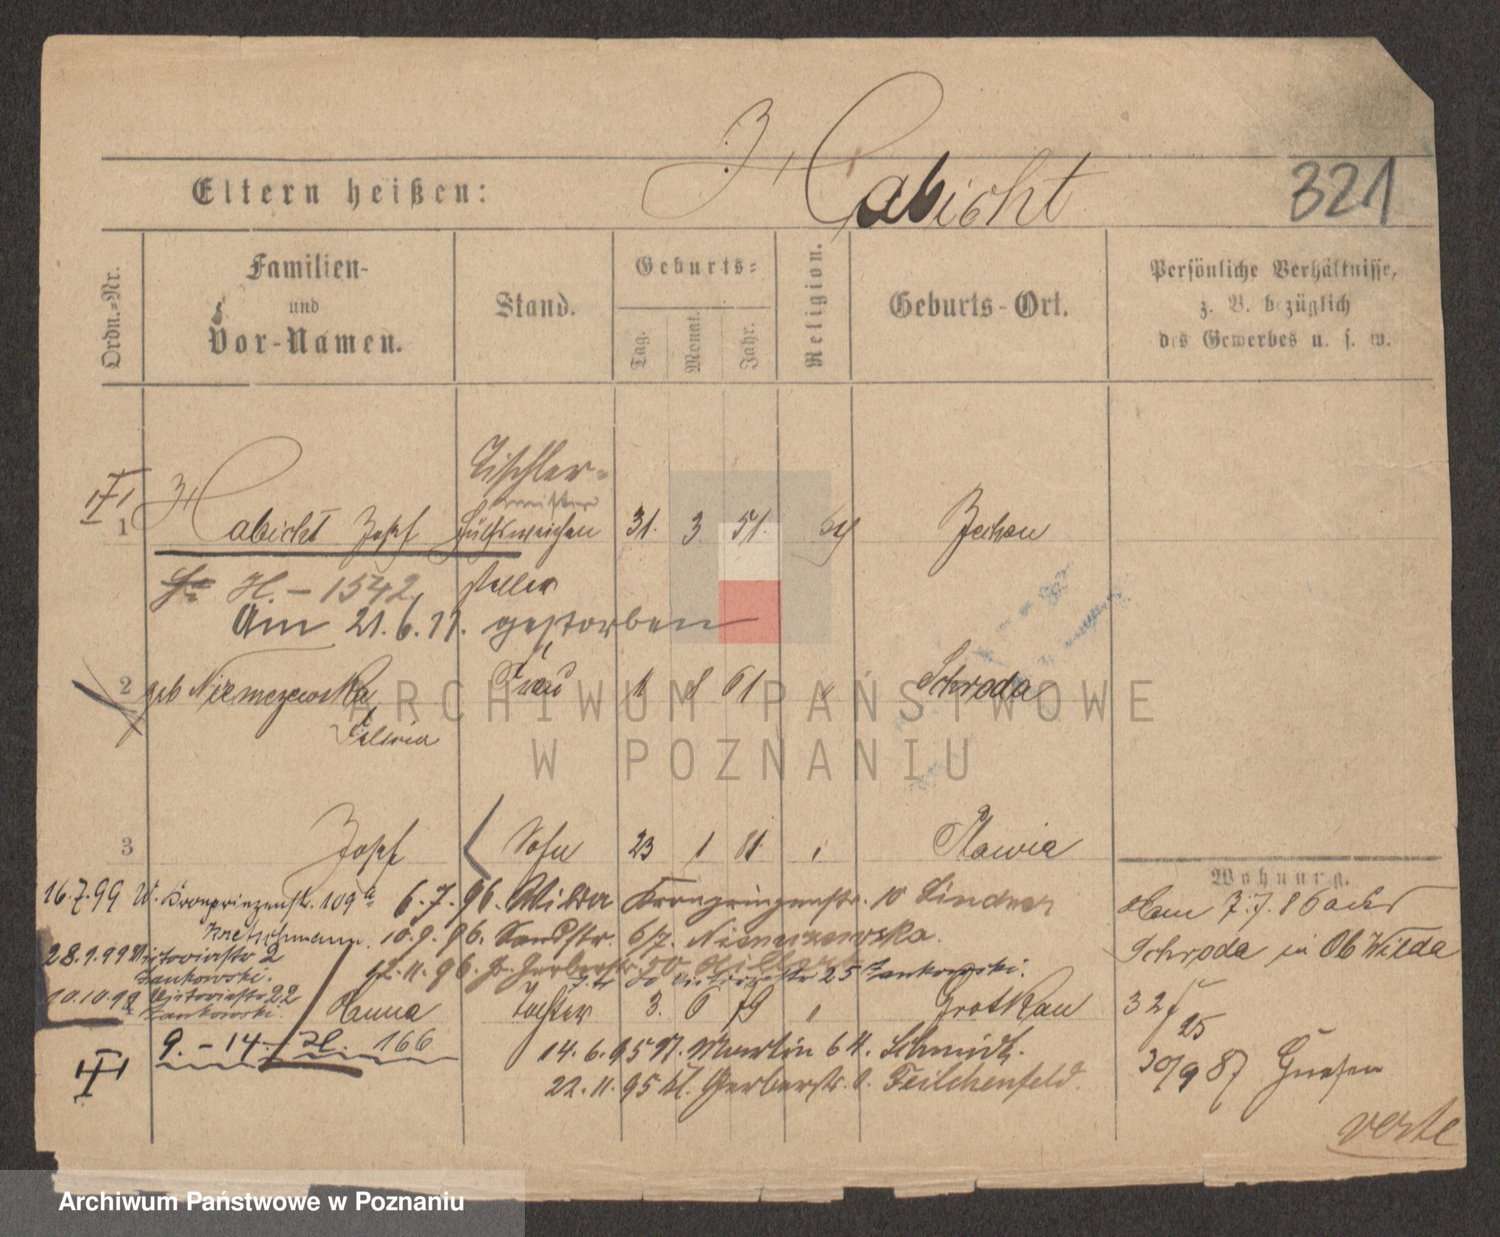 Habicht
321
Eltern heißen:
Ordn.-Nr.
Familien-
und
Vor-Namen.
Stand.
Geburts-
Tag.
Monat.
Jahr.
Religion.
Geburts-Ort.
Persönliche Verhältnisse,
z. B. bezüglich
des Gewerbes u. s. w.
Tischler-
meister
1 Habicht Josef Hülfsweichen 31. 3 51.
steller
H. - 1542
Am 21.6.11. gestorben
2 geb Niemczewska Frau 1 8 61 Schroda
ARCHIWUM PAŃSTWOWE
W POZNANIU
3 Josef Sohn 23 1 81
Wohnung.
16.7.99 W. Kronprinzenstr. 109a 6.7.96. Wilda Kronprinzenstr. 10 Lindner
Kretschmann. 10.9.96. Sandstr. 6/7. Niemczewska.
28.9.99 Victoriastr 2
Zankowski.
Victoriastr 25 Zankowski.
10.10.99 Victoriastr 22
Zankowski.
Hanna Tochter 3. 6 79 Grotkau
9. - 14 166
14.6.95 St. Martin 64. Schmidt.
22.11.95 Kl. Gerberstr. 8. Feilchenfeld.
7.7.86
Schroda in Ob Wilda
30/9 87 Gnesen
verte
Archiwum Państwowe w Poznaniu